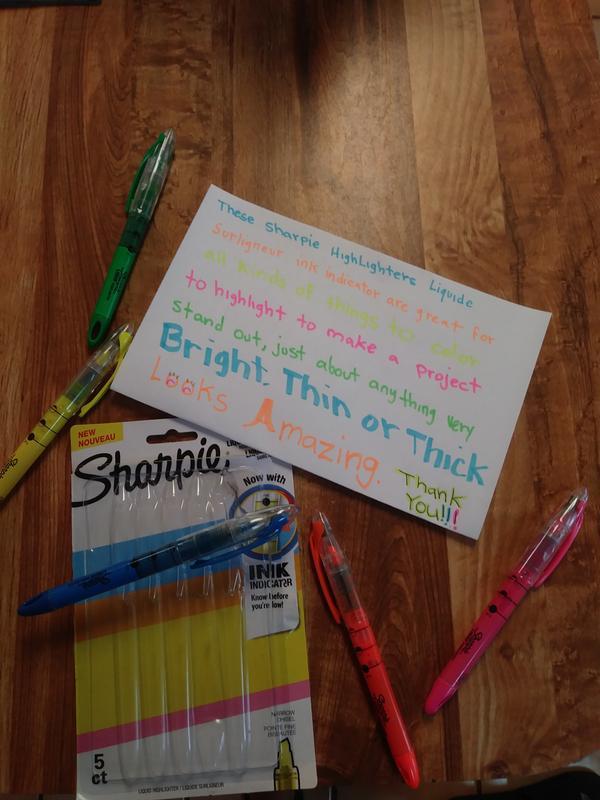 These Sharpie HighLighters Liquide
Surligneur ink indicator are great for
all kinds of things to color
to highlight to make a project
stand out, just about anything very
Bright. Thin or Thick
Looks Amazing.
Thank
You!!!
NEW
NOUVEAU
Sharpie
Now with
INK
INDICATOR
Know before
you're low!
NARROW
CHISEL
POINTE FINE
BISEAUTÉE
5
ct
LIQUID HIGHLIGHTER / LIQUIDE SURLIGNEUR
Sharpie
Sharpie
Sharpie
Sharpie